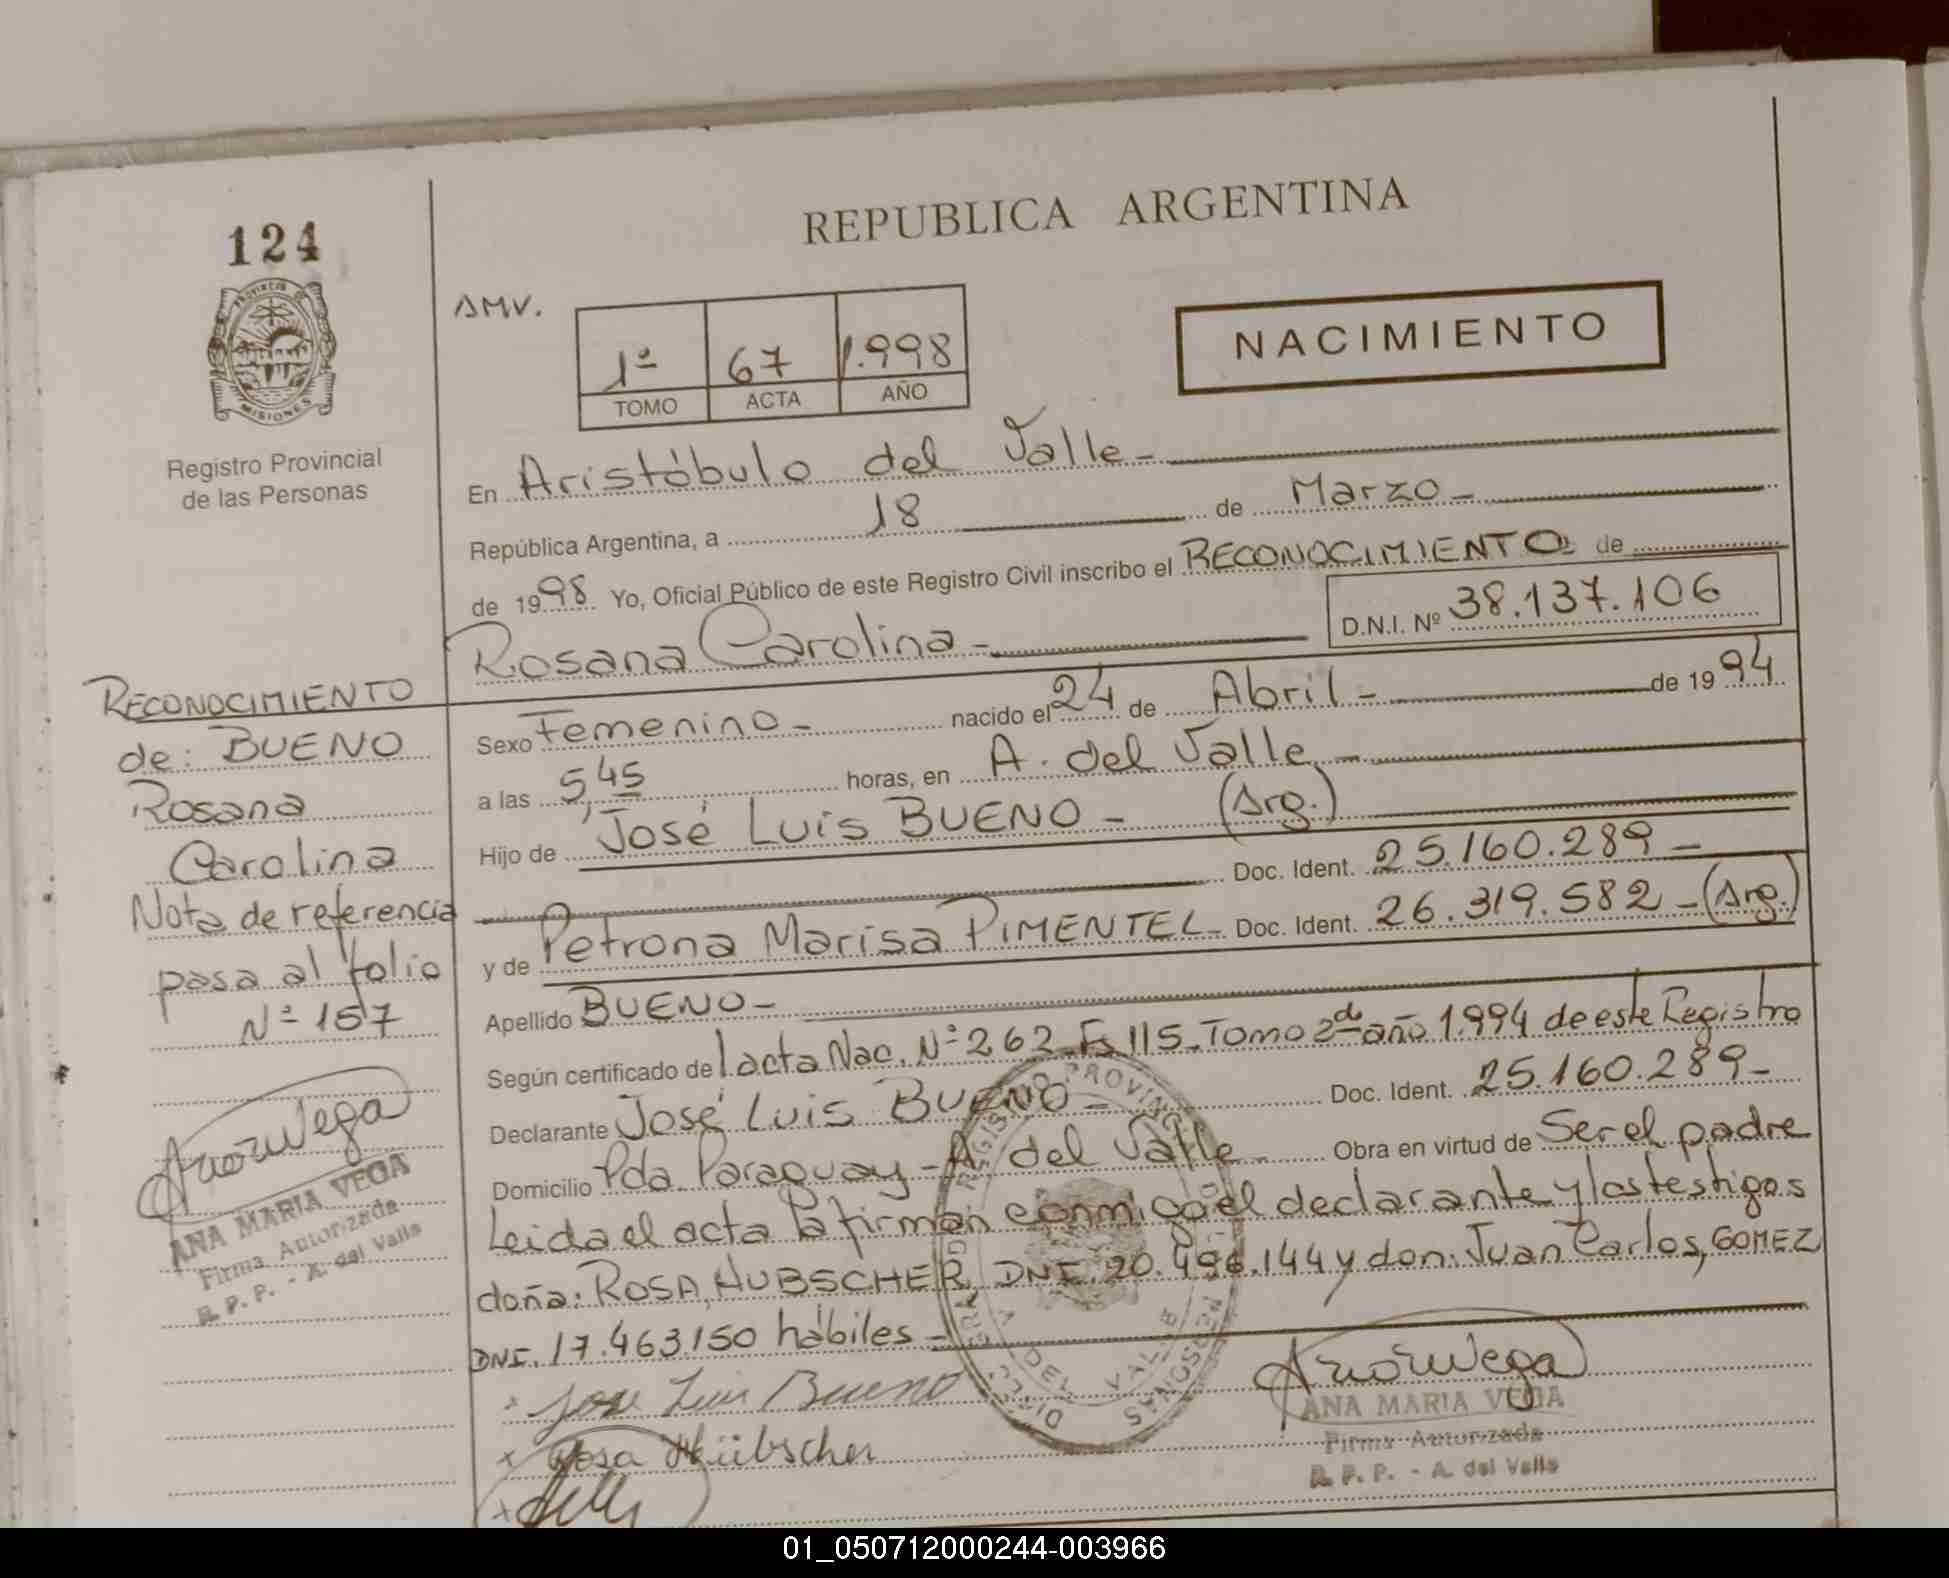 124
PROVINCIA DE
MISIONES
Registro Provincial
de las Personas
REPUBLICA ARGENTINA
AMV.
1º 67 1.998
TOMO ACTA AÑO
NACIMIENTO
En Aristóbulo del Valle-
República Argentina, a 18 de Marzo-
de 1998 Yo, Oficial Público de este Registro Civil inscribo el RECONOCIMIENTO de
D.N.I. Nº 38.137.106
Rosana Carolina-
Sexo Femenino- nacido el 24 de Abril- de 1994
a las 5,45 horas, en A. del Valle,-
Hijo de José Luis BUENO- (Arg.)
Doc. Ident. 25.160.289-
y de Petrona Marisa PIMENTEL- Doc. Ident. 26.319.582-(Arg.)
Apellido BUENO-
Según certificado de acta Nac. Nº 262-Fº 115-Tomo 2do año 1.994 de este Registro
Declarante José Luis BUENO- Doc. Ident. 25.160.289-
Domicilio Pda. Paraguay-A. del Valle- Obra en virtud de Ser el padre
Leida el acta la firman conmigo el declarante y los testigos
doña: ROSA, HUBSCHER, DNI. 20.496.144 y don: Juan Carlos, GOMEZ
DNI. 17.463.150 hábiles-
x Jose Luis Bueno
x Rosa Hübscher
RECONOCIMIENTO
de: BUENO
Rosana
Carolina
Nota de referencia
pasa al folio
Nº 157
ANA MARIA VEGA
Firma Autorizada
R. P. P. - A. del Valle
ANA MARIA VEGA
Firma Autorizada
R. P. P. - A. del Valle
01_050712000244-003966